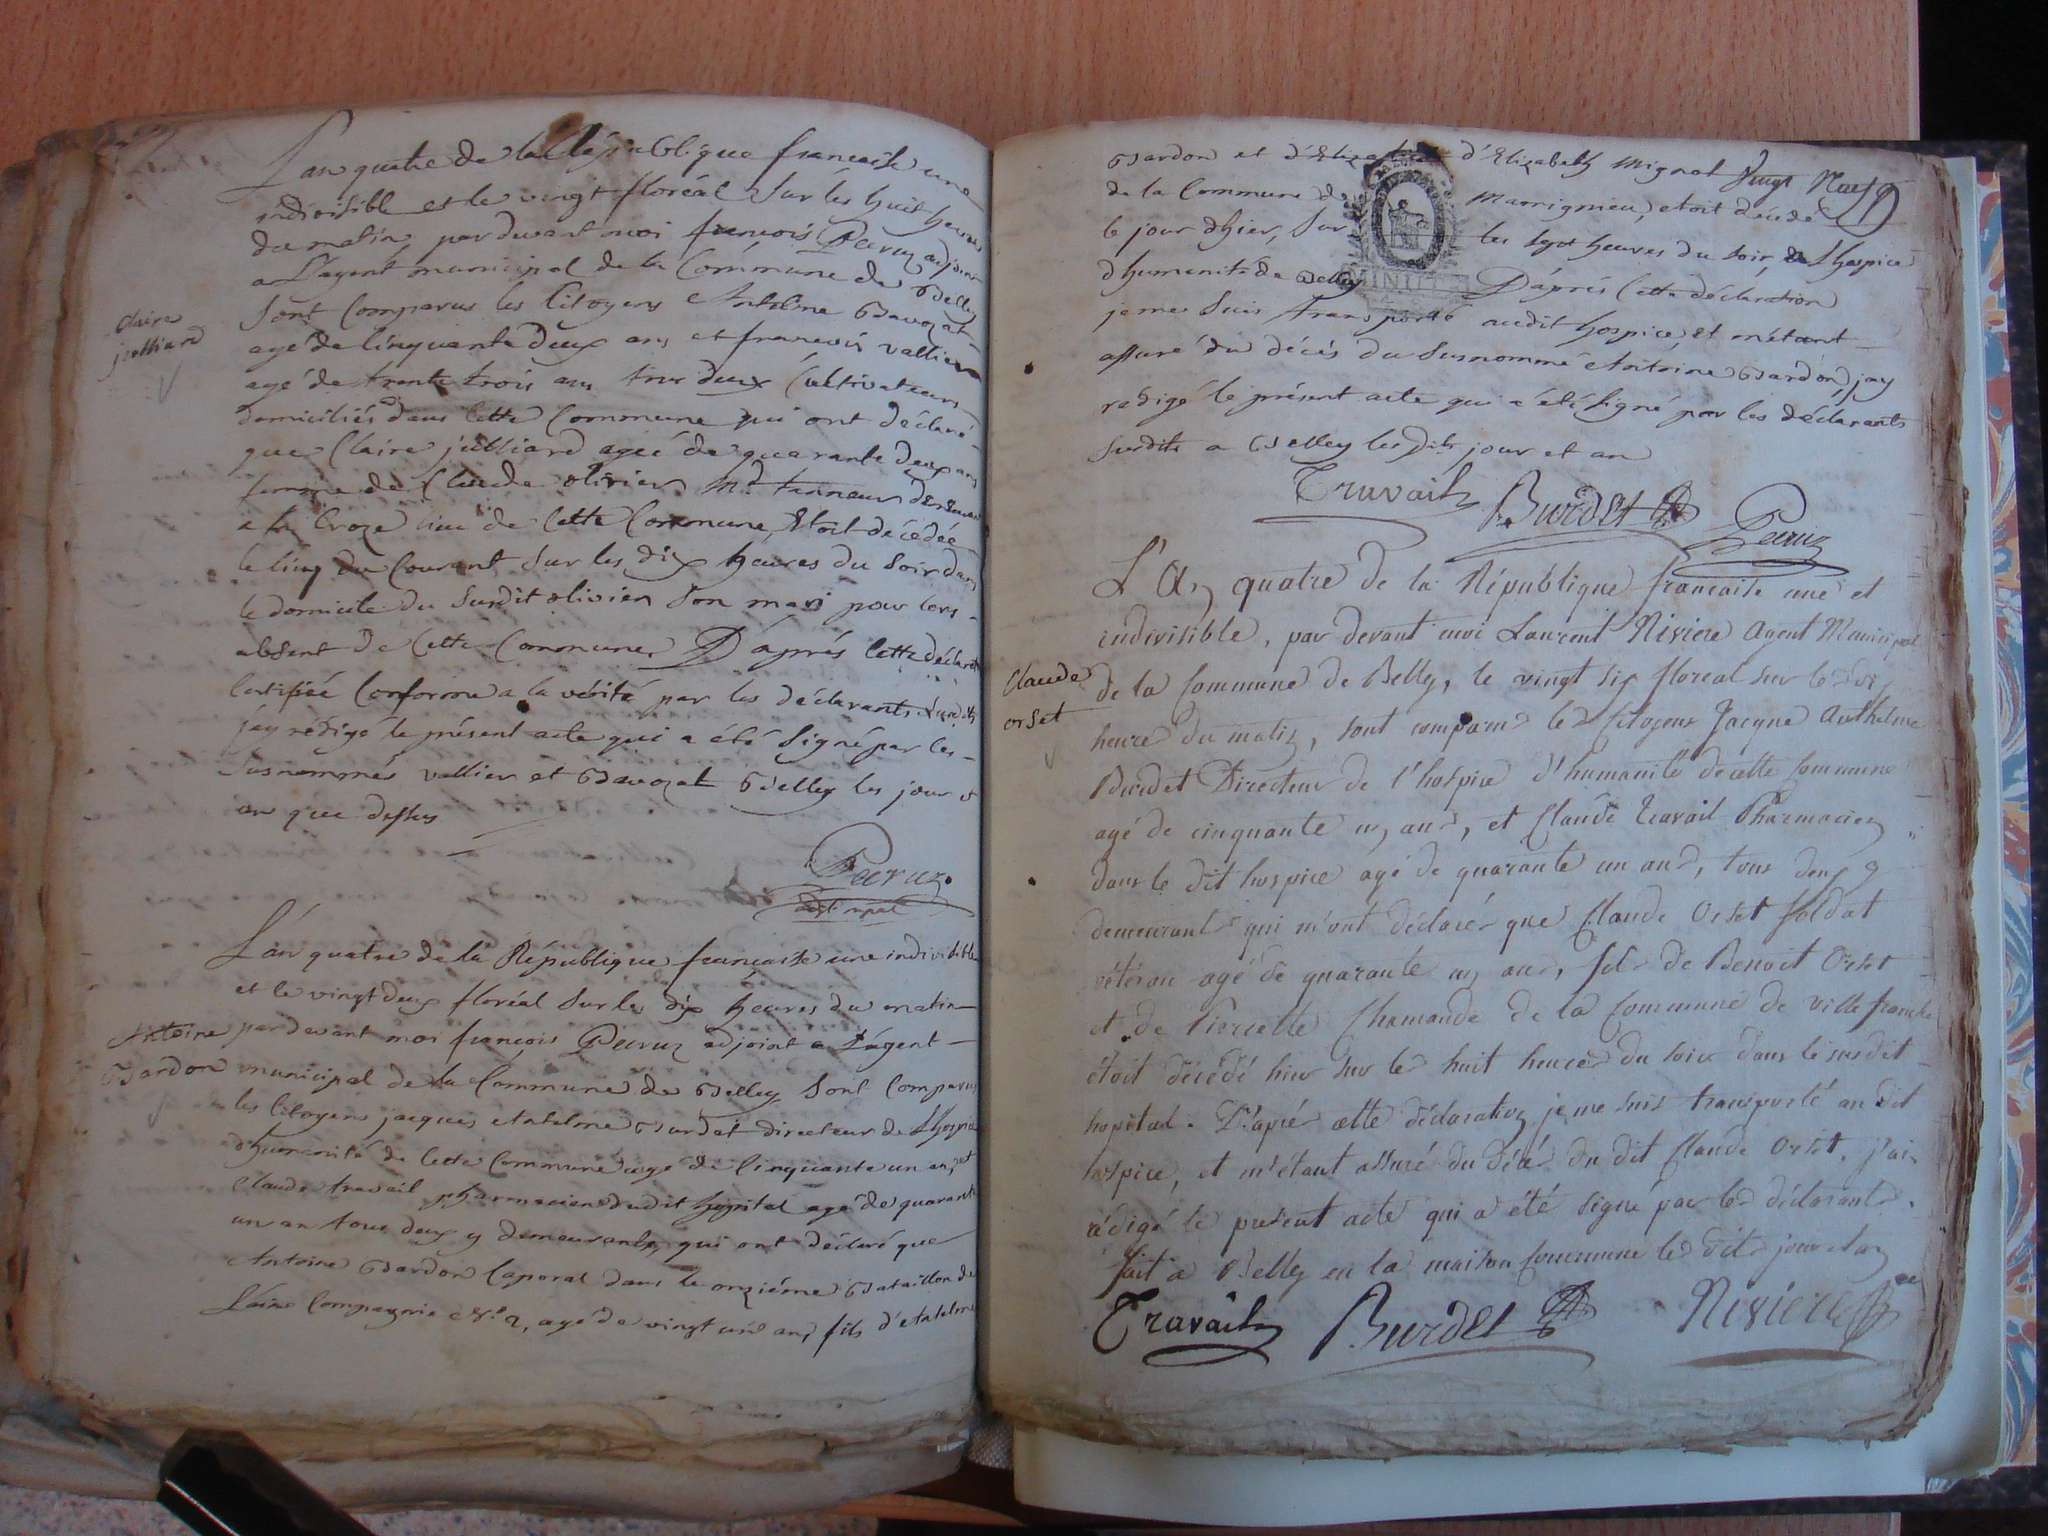 L'an quatre de la République francaise une
indivisible et le vingt floréal sur lés huit heures
du matin, par devant moi françois Peruz adjoint
a L'agent municipal de la Commune de Belley
Sont Comparus les Citoyens Antelme Bavozat
agé de Cinquante deux ans et francois vallier
agé de trente trois ans tous deux Cultivateurs
domiciliés dans Cette Commune qui ont déclaré
que Claire julliard agée de quarante deux ans
femme de Claude olivier Md tanneur demeurant
a la Croze rue de Cette Commune, Etoit décédée
le Cinq du Courant sur les dix heures du Soir dans
le domicile du Susdit olivier Son mari pour lors
absent de Cette Commune, D'aprés Cette déclaration
Certifiée Conforme a la vérité par les déclarants susdits
j'ay rédigé le présent acte qui a été signé par les
susnommés vallier et Bavozat Belley les jour &
an que dessus
Claire
julliard
Peruz
adjt mpal
L'an quatre de la République francaise une indivisible
et le vingt deux floréal sur les dix heures du matin
par devant moi françois Peruz adjoint a L'agent
Antoine
Bardon
municipal de la Commune de Belley sont Comparus
les Citoyens jacques Antelme Burdet directeur de L'hospice
d'humanité de Cette Commune agé de Cinquante un an, et
Claude travail pharmacien dudit hopital agé de quarante
un an tous deux y demeurants, qui ont déclaré que
Antoine Bardon Caporal dans le onziéme Bataillon de
L'ain Compagnie N.o 2, agé de vingt un an, fils d'Antelme
Bardon et d'Elizabeth d'Elizabeth Mignot vingt Neuf
de la Commune de Marignieu, etoit décédé
le jour d'hier, Sur les sept heures du soir, a L'hospice
d'humanité de Belley D'aprés Cette déclaration
je me Suis transporté audit hospice, et m'étant
assuré du décés du susnommé Antoine Bardon, j'ay
redigé le présent acte qui a été signé par les déclarants
Susdits a Belley les dits jour et an
MINUTE
Travail Burdet Peruz
L'An quatre de la République francaise une et
indivisible, par devant moi Laurent Riviere Agent Municipal
Claude
orset
de la Commune de Belley, le vingt six floreal sur les dix
heures du matin, sont comparus les Citoyens Jacque Anthelme
Burdet Directeur de l'hospice d'humanité de cette Commune
agé de cinquante un ans, et Claude Travail Pharmacien
dans le dit hospice agé de quarante un ans, tous deux y
demeurants qui m'ont déclaré que Claude Orset soldat
vétéran agé de quarante un ans, fils de Benoit Orset
et de Pierrette Chamande de la Commune de ville franche
étoit décédé hier sur les huit heures du soir dans le susdit
hopital. D'après cette déclaration je me suis transporté au dit
hospice, et m'étant assuré du décés du dit Claude Orset, j'ai
rédigé le present acte qui a été signé par les déclarants.
fait a Belley en la maison Commune les dits jour et an
Travail Burdet Riviere